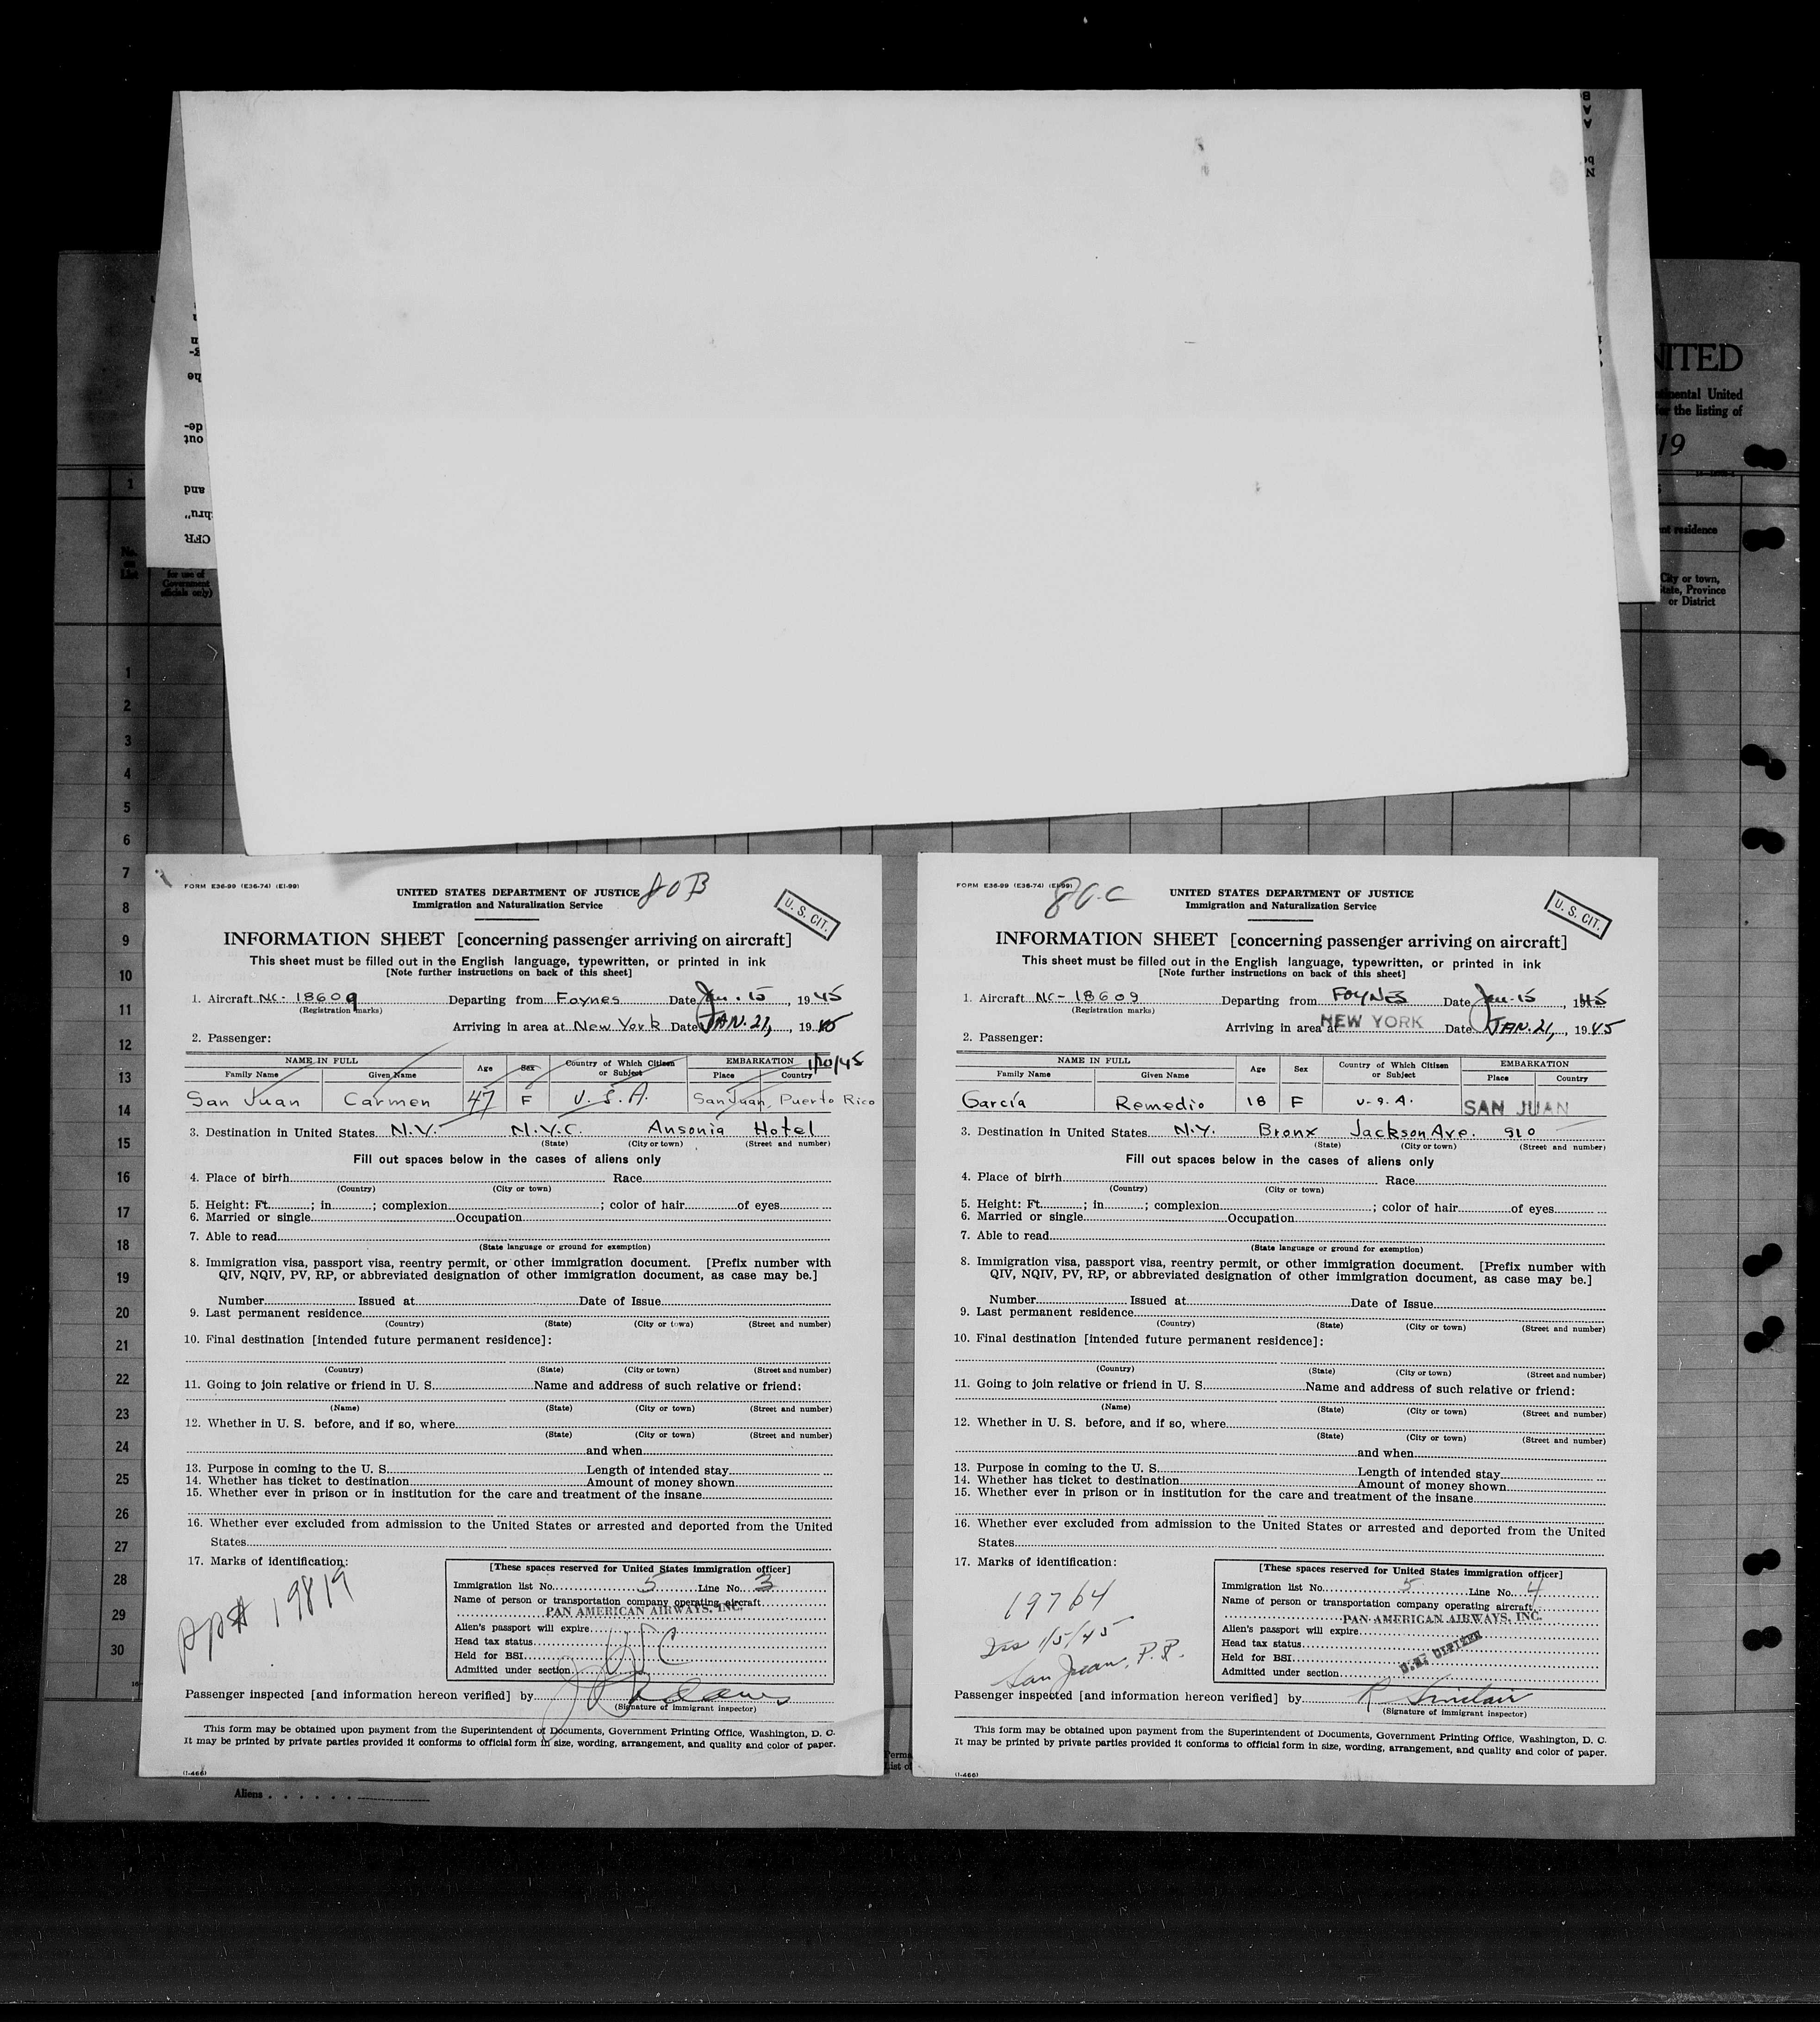 NITED
mental United
for the listing of
19
1
nt residence
No.
on
List
for use of
Government
officials only)
City or town,
State, Province
or District
1
2
3
4
5
6
7
8
9
10
11
12
13
14
15
16
17
18
19
20
21
22
23
24
25
26
27
28
29
30
FORM E36-99 (E36-74) (EI-99)
80B
UNITED STATES DEPARTMENT OF JUSTICE
Immigration and Naturalization Service
U. S. CIT.
INFORMATION SHEET [concerning passenger arriving on aircraft]
This sheet must be filled out in the English language, typewritten, or printed in ink
[Note further instructions on back of this sheet]
1. Aircraft NC-18609 Departing from Foynes Date Jan. 15, 1945
(Registration marks)
Arriving in area at New York Date JAN. 21, 1945
2. Passenger:
1/20/45
NAME IN FULL Age Sex Country of Which Citizen or Subject EMBARKATION
Family Name Given Name Place Country
San Juan Carmen 47 F U.S.A. San Juan, Puerto Rico
3. Destination in United States N.Y. N.Y.C. Ansonia Hotel
(State) (City or town) (Street and number)
Fill out spaces below in the cases of aliens only
4. Place of birth Race
(Country) (City or town)
5. Height: Ft. ; in ; complexion ; color of hair of eyes
6. Married or single Occupation
7. Able to read
(State language or ground for exemption)
8. Immigration visa, passport visa, reentry permit, or other immigration document. [Prefix number with
QIV, NQIV, PV, RP, or abbreviated designation of other immigration document, as case may be.]
Number Issued at Date of Issue
9. Last permanent residence
(Country) (State) (City or town) (Street and number)
10. Final destination [intended future permanent residence]:
(Country) (State) (City or town) (Street and number)
11. Going to join relative or friend in U. S. Name and address of such relative or friend:
(Name) (State) (City or town) (Street and number)
12. Whether in U. S. before, and if so, where
(State) (City or town) (Street and number)
and when
13. Purpose in coming to the U. S. Length of intended stay
14. Whether has ticket to destination Amount of money shown
15. Whether ever in prison or in institution for the care and treatment of the insane
16. Whether ever excluded from admission to the United States or arrested and deported from the United
States
17. Marks of identification:
PP# 19819
[These spaces reserved for United States immigration officer]
Immigration list No. 5 Line No. 3
Name of person or transportation company operating aircraft
PAN AMERICAN AIRWAYS, INC.
Alien's passport will expire
Head tax status USC
Held for BSI
Admitted under section
Passenger inspected [and information hereon verified] by
(Signature of immigrant inspector)
This form may be obtained upon payment from the Superintendent of Documents, Government Printing Office, Washington, D. C.
It may be printed by private parties provided it conforms to official form in size, wording, arrangement, and quality and color of paper.
(I-466)
Aliens
FORM E36-99 (E36-74) (EI-99)
80-C
UNITED STATES DEPARTMENT OF JUSTICE
Immigration and Naturalization Service
U. S. CIT.
INFORMATION SHEET [concerning passenger arriving on aircraft]
This sheet must be filled out in the English language, typewritten, or printed in ink
[Note further instructions on back of this sheet]
1. Aircraft NC-18609 Departing from FOYNES Date Jan-15, 1945
(Registration marks)
Arriving in area at NEW YORK Date JAN. 21, 1945
2. Passenger:
NAME IN FULL Age Sex Country of Which Citizen or Subject EMBARKATION
Family Name Given Name Place Country
García Remedio 18 F U.S.A. SAN JUAN
3. Destination in United States N.Y. Bronx Jackson Ave. 910
(State) (City or town) (Street and number)
Fill out spaces below in the cases of aliens only
4. Place of birth Race
(Country) (City or town)
5. Height: Ft. ; in ; complexion ; color of hair of eyes
6. Married or single Occupation
7. Able to read
(State language or ground for exemption)
8. Immigration visa, passport visa, reentry permit, or other immigration document. [Prefix number with
QIV, NQIV, PV, RP, or abbreviated designation of other immigration document, as case may be.]
Number Issued at Date of Issue
9. Last permanent residence
(Country) (State) (City or town) (Street and number)
10. Final destination [intended future permanent residence]:
(Country) (State) (City or town) (Street and number)
11. Going to join relative or friend in U. S. Name and address of such relative or friend:
(Name) (State) (City or town) (Street and number)
12. Whether in U. S. before, and if so, where
(State) (City or town) (Street and number)
and when
13. Purpose in coming to the U. S. Length of intended stay
14. Whether has ticket to destination Amount of money shown
15. Whether ever in prison or in institution for the care and treatment of the insane
16. Whether ever excluded from admission to the United States or arrested and deported from the United
States
17. Marks of identification:
19764
Iss 1/5/45
San Juan, P.R.
[These spaces reserved for United States immigration officer]
Immigration list No. 5 Line No. 4
Name of person or transportation company operating aircraft
PAN AMERICAN AIRWAYS, INC.
Alien's passport will expire
Head tax status
Held for BSI U.S. CITIZEN
Admitted under section
Passenger inspected [and information hereon verified] by R Sinclair
(Signature of immigrant inspector)
This form may be obtained upon payment from the Superintendent of Documents, Government Printing Office, Washington, D. C.
It may be printed by private parties provided it conforms to official form in size, wording, arrangement, and quality and color of paper.
(I-466)